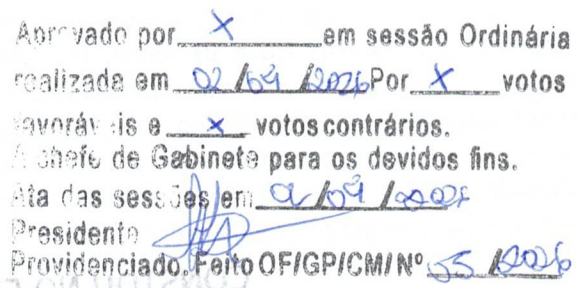 Aprovado por X em sessão Ordinária
realizada em 02/04/2026 Por X votos
favoráveis e X votos contrários.
A chefe de Gabinete para os devidos fins.
Ata das sessões em 02/04/2026
Presidente
Providenciado. Feito OF/GP/CM/Nº 55/2026